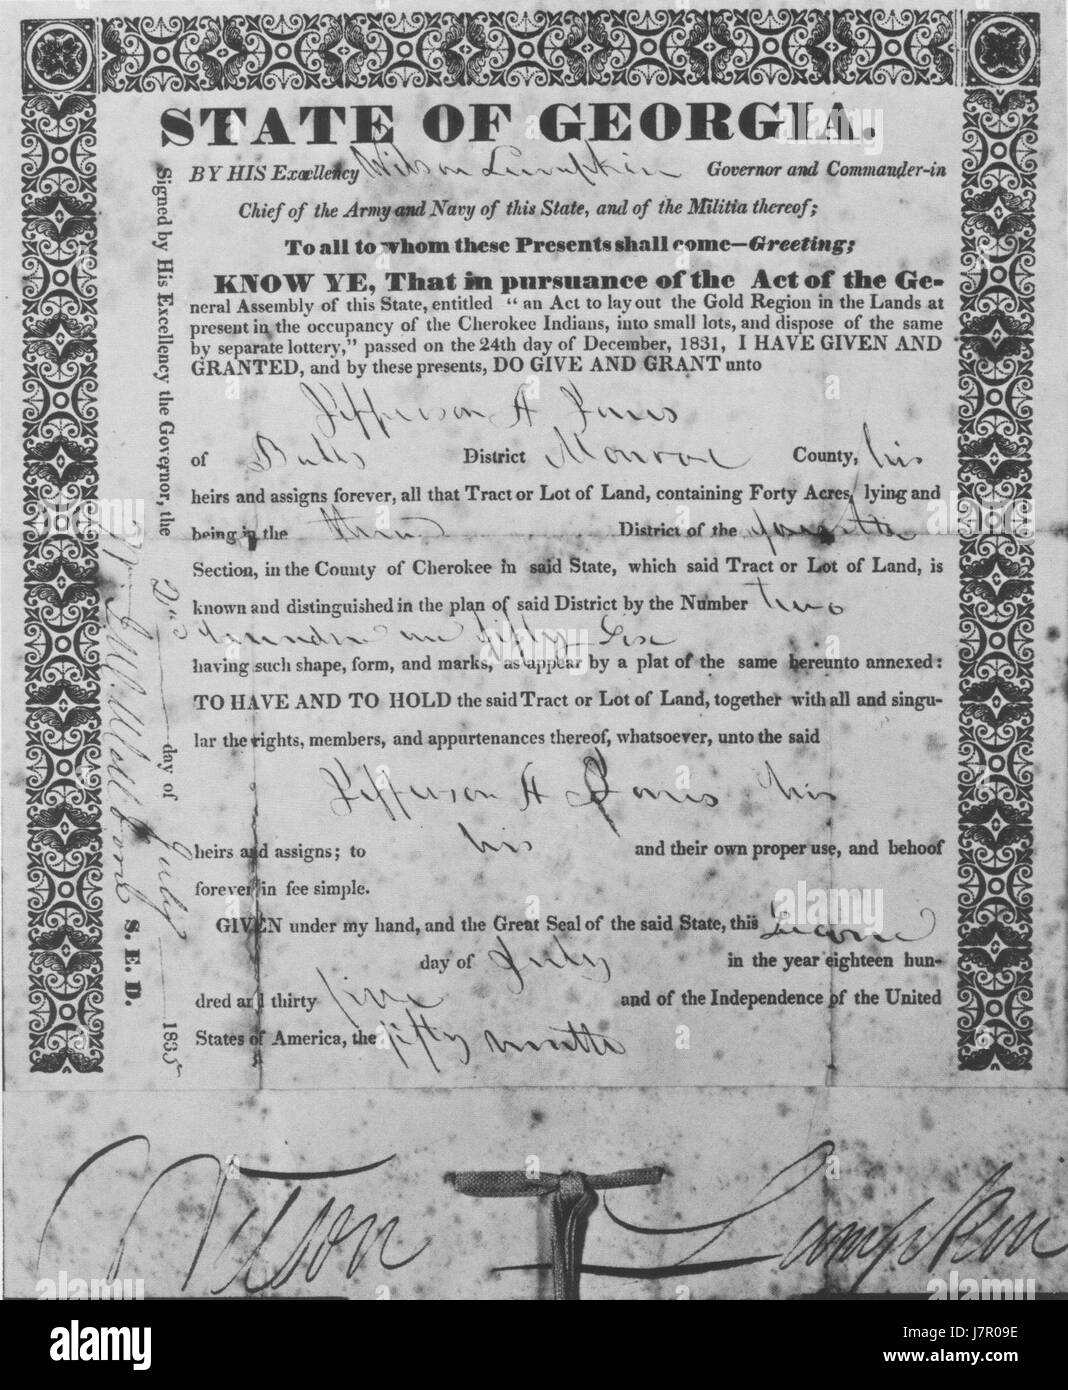 STATE OF GEORGIA.
BY HIS Excellency Wilson Lumpkin Governor and Commander-in
Chief of the Army and Navy of this State, and of the Militia thereof;
To all to whom these Presents shall come—Greeting;
KNOW YE, That in pursuance of the Act of the Ge-
neral Assembly of this State, entitled "an Act to lay out the Gold Region in the Lands at
present in the occupancy of the Cherokee Indians, into small lots, and dispose of the same
by separate lottery," passed on the 24th day of December, 1831, I HAVE GIVEN AND
GRANTED, and by these presents, DO GIVE AND GRANT unto
Jefferson A Jones
of District Monroe County, his
heirs and assigns forever, all that Tract or Lot of Land, containing Forty Acres, lying and
being in the third District of the fourth
Section, in the County of Cherokee in said State, which said Tract or Lot of Land, is
known and distinguished in the plan of said District by the Number two
hundred and fifty six
having such shape, form, and marks, as appear by a plat of the same hereunto annexed:
TO HAVE AND TO HOLD the said Tract or Lot of Land, together with all and singu-
lar the rights, members, and appurtenances thereof, whatsoever, unto the said
Jefferson A Jones his
heirs and assigns; to his and their own proper use, and behoof
forever in fee simple.
GIVEN under my hand, and the Great Seal of the said State, this Second
day of July in the year eighteen hun-
dred and thirty five and of the Independence of the United
States of America, the fifty ninth
Signed by His Excellency the Governor, the 2d day of July 1835
S. E. D.
Wilson Lumpkin
alamy
alamy
Image ID: J7R09E
www.alamy.com